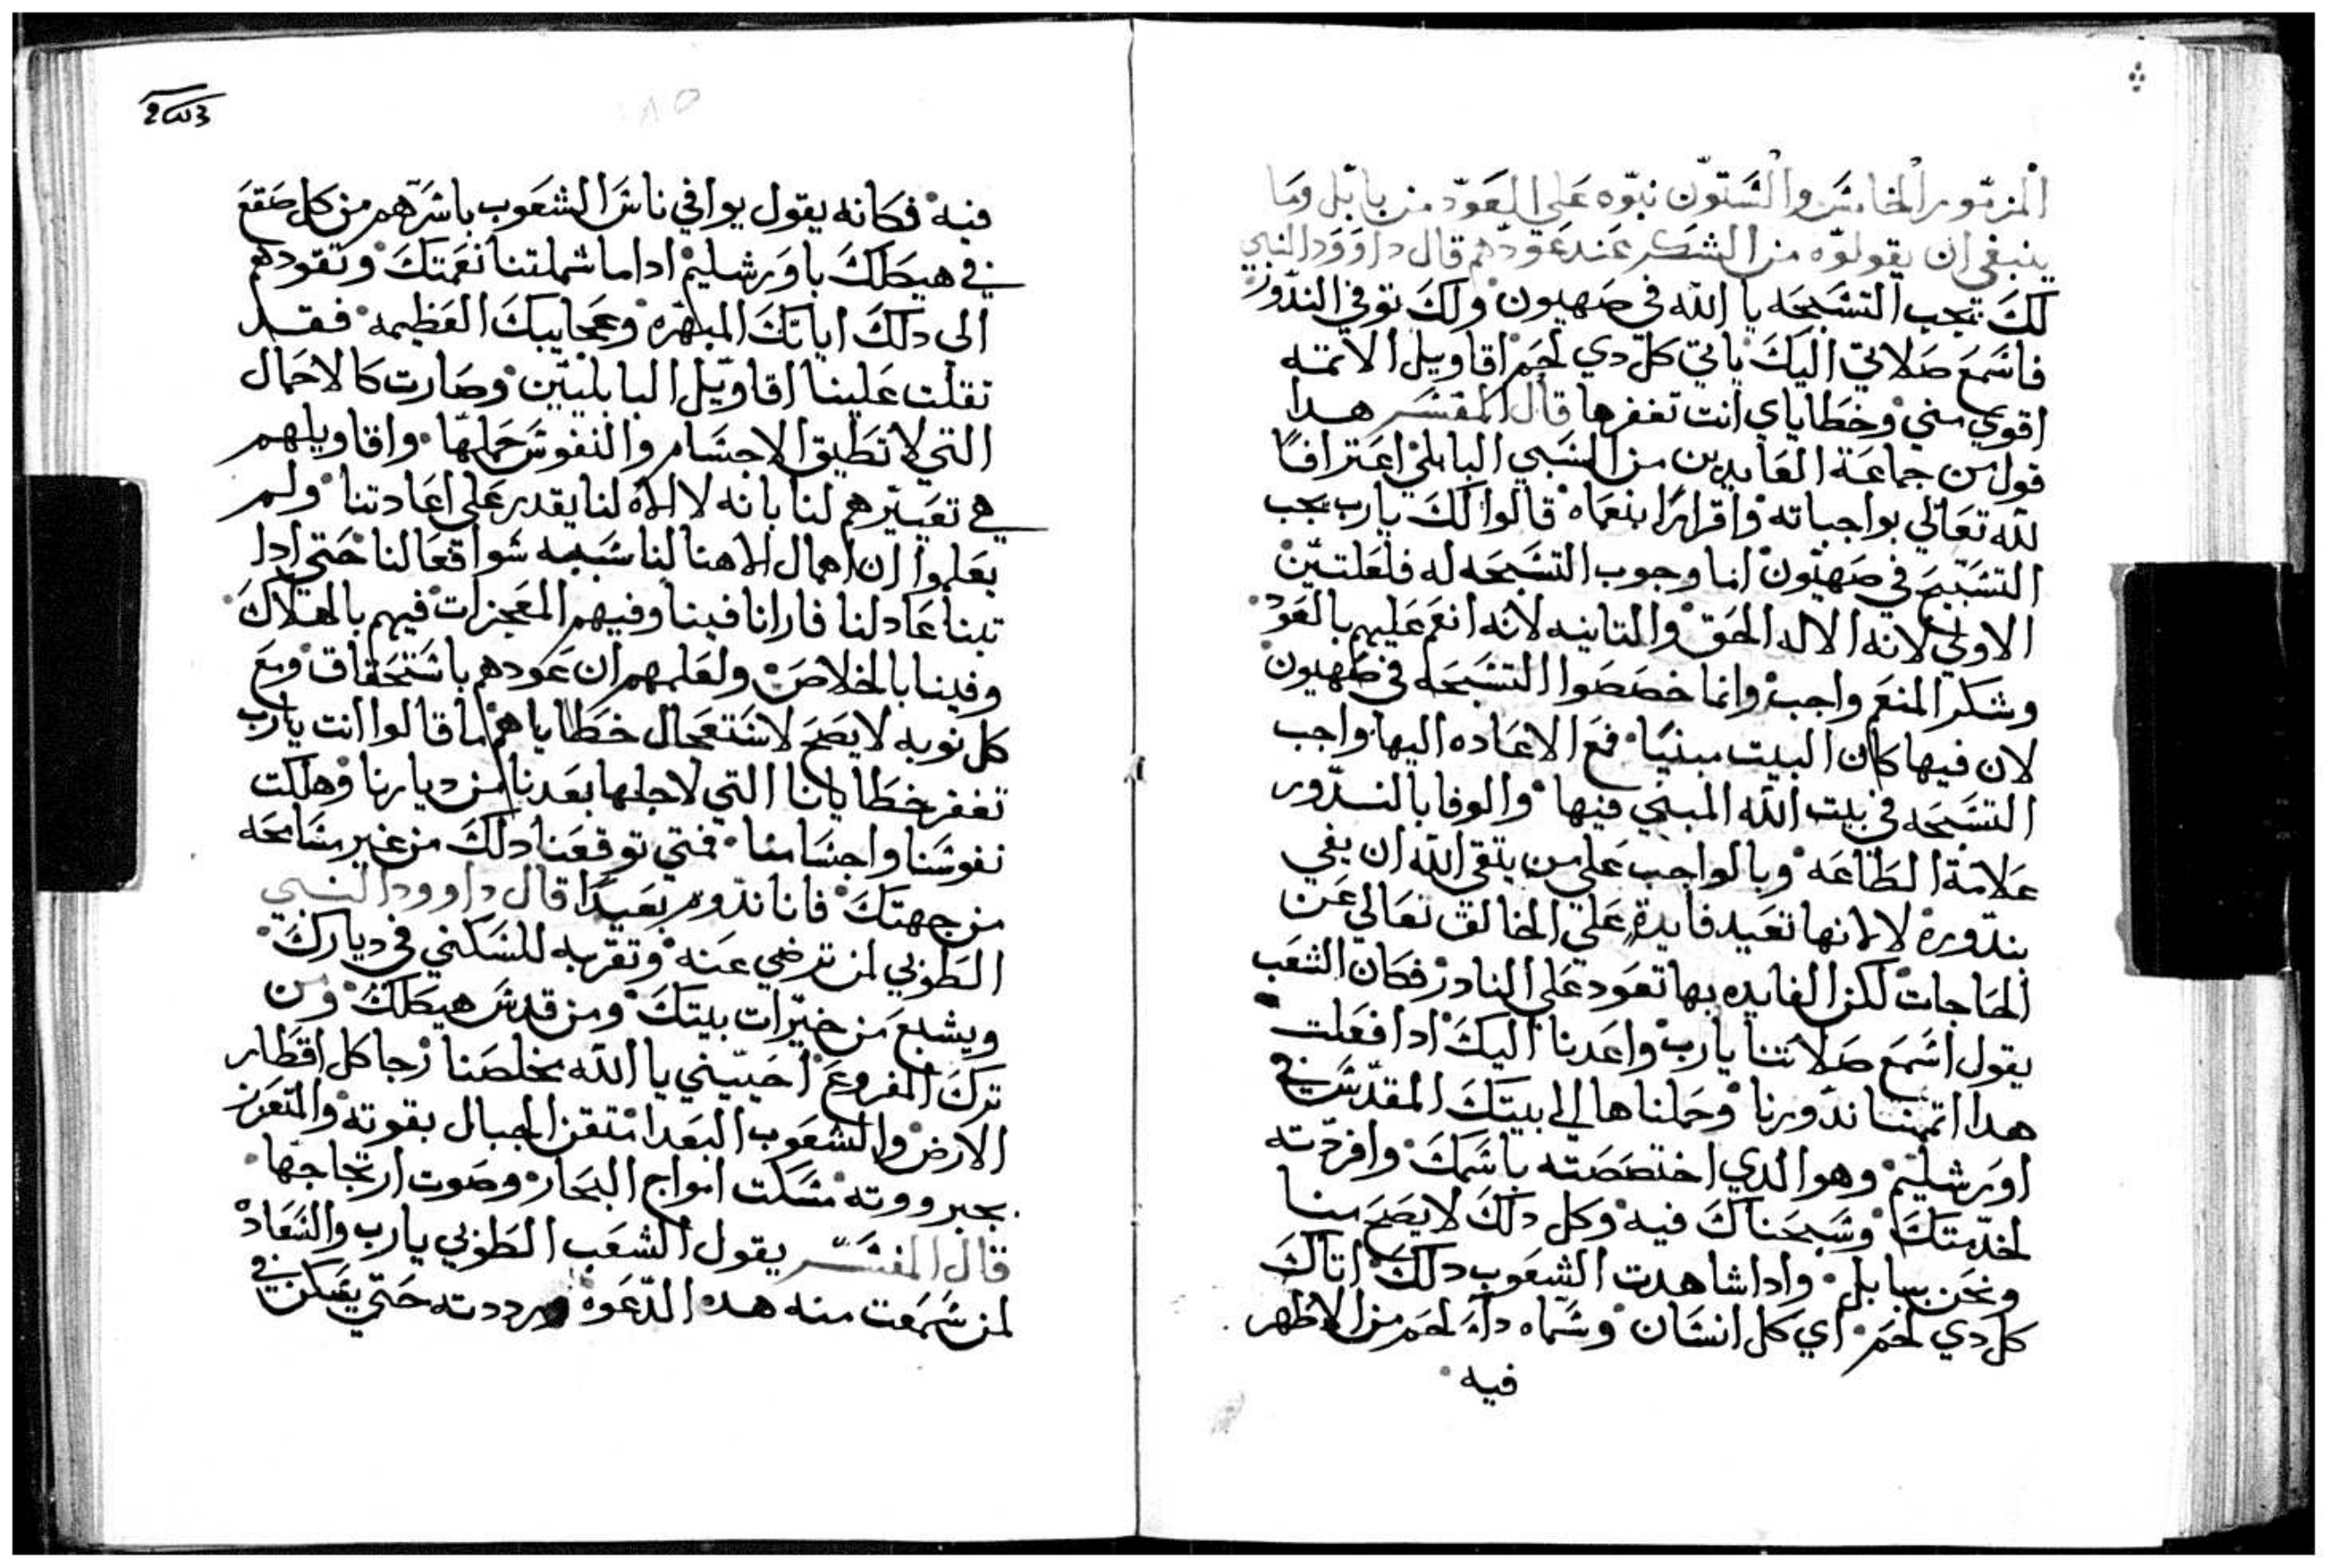 المزمور الخامس والستون نبوه على العود من بابل وما
ينبغي ان يقولوه من الشكر عند عودهم قال داوود النبي
لك تجب التسبحه يا الله في صهيون ولك توفي الندور
فاسمع صلاتي اليك ياتي كل دي لحم اقاويل الاتمه
اقوي مني وخطاياي انت تغفرها قال المفسر هدا
قول من جماعة العايدين من السبي البابلي اعترافًا
لله تعالي بواجباته واقرارًا بنعماه قالوا لك يارب يجب
التسبيح في صهيون اما وجوب التسبحه له فلعلتين
الاولي لانه الاله الحق والتانيه لانه انعم عليهم بالعود
وشكر المنعم واجب وانما خصصوا التسبحه في صهيون
لان فيها كان البيت مبنيًا فمع الاعاده اليها واجب
التسبحه في بيت الله المبني فيها والوفا بالندور
علامة الطاعه وبالواجب علي من يتقي الله ان يفي
بندوره لا لانها تعيد فايدة علي الخالق تعالي عن
الحاجات لكن الفايده بها تعود علي النادر فكان الشعب
يقول اسمع صلاتنا يارب واعدنا اليك ادا فعلت
هدا اتممنا ندورنا وحملناها الي بيتك المقدس في
اورشليم وهو الدي اختصصته باسمك وافردته
لخدمتك وسبحناك فيه وكل دلك لا يصح منا
ونحن ببابل وادا شاهدت الشعوب دلك اتاك
كل دي لحم اي كل انسان وسماه دا لحم من الاظهر
فيه
203
فيه فكانه يقول يوافي ناس الشعوب باسرهم من كل صقع
في هيكلك باورشليم ادا ما شملتنا نعمتك وتقودهم
الي دلك اياتك المبهره وعجايبك العظيمه فقد
تقلت علينا اقاويل البابليين وصارت كالاحمال
التي لا تطيق الاجسام والنفوس حملها واقاويلهم
هي تعييرهم لنا بانه لا الاه لنا يقدر علي اعادتنا ولم
يعلموا ان اهمال الاهنا لنا سببه سوافعالنا حتي ادا
تبنا عاد لنا فارانا فينا وفيهم المعجزات فيهم بالهلاك
وفينا بالخلاص ولعلمهم ان عودهم باستحقاق ومع
كل توبه لا يصح لاستعجال خطاياهم ما قالوا انت يارب
تغفر خطايانا التي لاجلها بعدنا من ديارنا وهلكت
نفوسنا واجسامنا فمتي توقعنا دلك من غير مسامحه
من جهتك فانا ندوم بعيدًا قال داوود النبي
الطوبي لمن ترضي عنه وتقربه للسكني في ديارك
ويشبع من خيرات بيتك ومن قدس هيكلك ومن
ترك المفروع احييني يا الله مخلصنا رجا كل اقطار
الارض والشعوب البعدا متقن الجبال بقوته والمتعزز
بجبرووته مسكت امواج البحار وصوت ارتجاجها
قال المفسر يقول الشعب الطوبي يارب والسعاده
لمن سمعت منه هده الدعوه ورددته حتي يسكن في